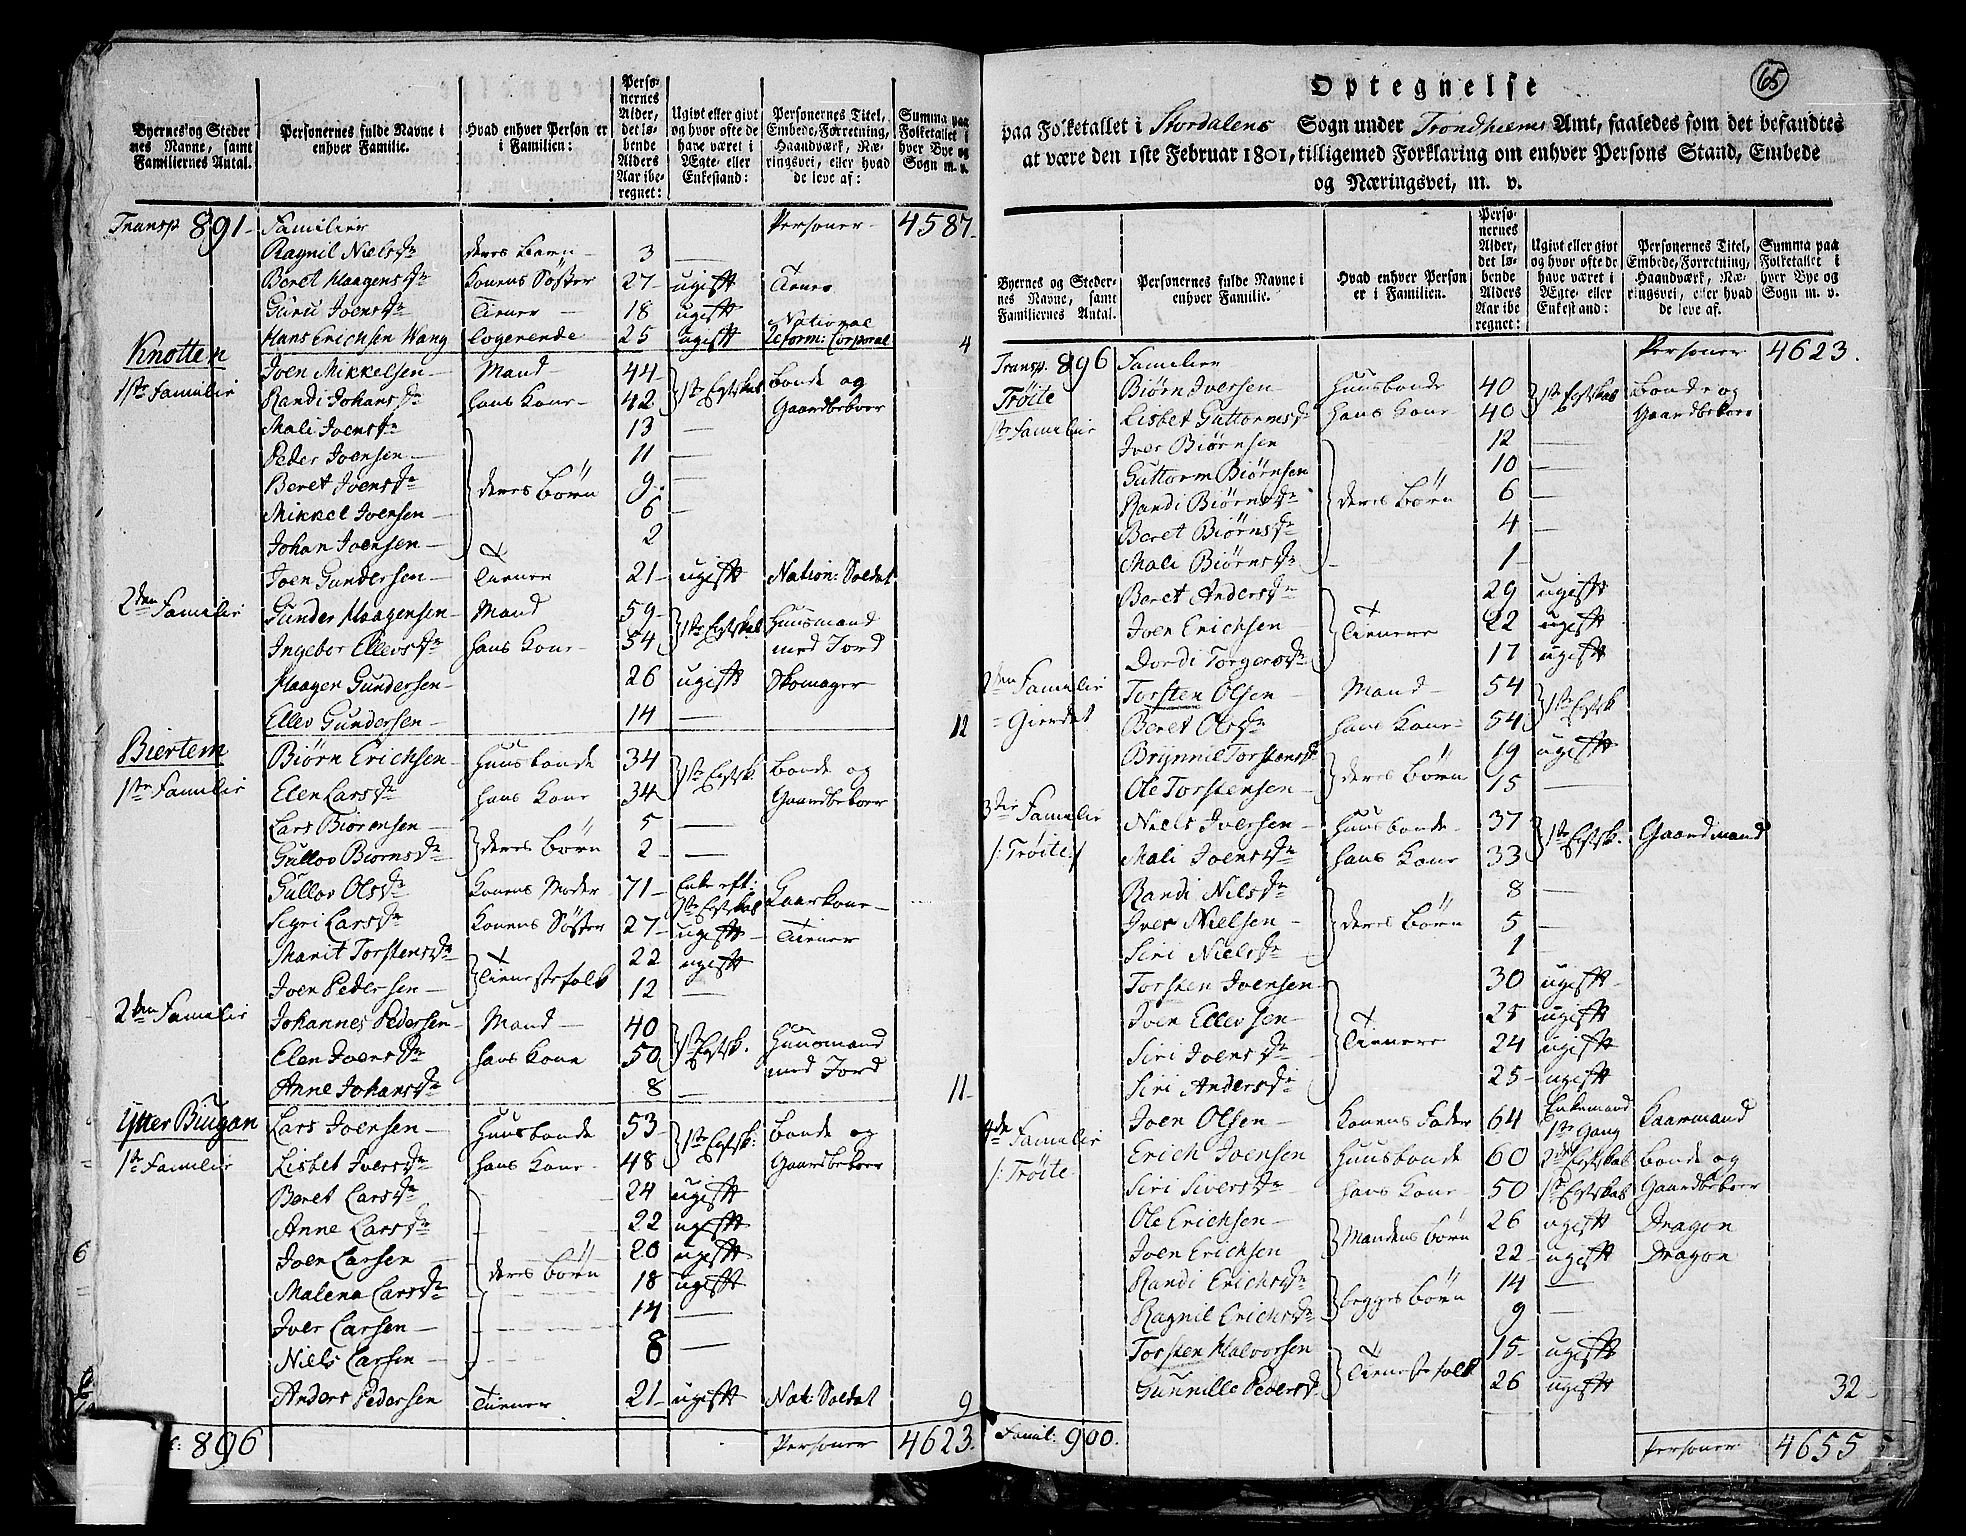 Byernes og Steder nes Navne, samt Familiernes Antal.
Personernes fulde Navne i enhver Familie.
Hvad enhver Person er i Familien:
Perso- nernes Alder, det lø- bende Alders Aar ibe- regnet:
Ugivt eller givt og hvor ofte de have været i Ægte- eller Enkestand:
Personernes Titel, Embede, Forretning, Haandværk, Næ- ringsvei, eller hvad de leve af:
Summa paa Folketallet i hver Bye og Sogn m. v.
Transp 891 Familier Personer 4587.
Ragnil Nielsdr deres Barn 3 —
Beret Haagensdr Konens Søster 27 ugift Tiener
Guru Joensdr Tiener 18 ugift
Hans Erichsen Wang logerende 25 ugift National Reform: Corporal 4
Knotten Joen Mikkelsen Mand 44 1ste Egtskab Bonde og
1ste Familie Randi Johansdr hans Kone 42 Gaardbeboer
Mali Joensdr 13 —
Peder Joensen 11 —
Beret Joensdr deres Børn 9 —
Mikkel Joensen 6 —
Johan Joensen 2
Joen Gundersen Tiener 21 ugift Nation: Soldat
2den Familie Gunder Haagensen Mand 59 1ste Egtskab Huusmand
Ingebor Ellevsdr hans Kone 54 med Jord
Haagen Gundersen 26 ugift Skomager
Ellev Gundersen 14 — 12
Biertem Biørn Erichsen Huusbonde 34 1ste Egtsk. Bonde og
1ste Familie Elen Larsdr hans Kone 34 Gaardbeboer
Lars Biørensen 5 —
Gullov Biørnsdr deres Børn 2 —
Gullov Olsdr Konens Moder 71 Enke eft: 1ste Egtskab Kaarkone
Sigri Larsdr Konens Søster 27 ugift Tiener
Marit Torstensdr 22 ugift
Joen Pedersen Tienestefolk 12 —
2den Familie Johannes Pedersen Mand 40 1ste Egtsk. Huusmand
Elen Joensdr hans Kone 50 med Jord
Anne Johansdr 8 — 11
Ytter Biugan Lars Joensen Huusbonde 53 1ste Egtsk: Bonde og
1ste Familie Lisbet Iversdr hans Kone 48 Gaardbeboer
Beret Larsdr 24 ugift
Anne Larsdr 22 ugift
Joen Larsen 20 ugift
Malena Larsdr deres Børn 18 ugift
Iver Larsen 14 —
Niels Larsen 8 —
Anders Pedersen Tiener 21 ugift Nat: Soldat 9
896 Personer 4623.
65
Optegnelse
paa Folketallet i Stordalens Sogn under Trondhiems Amt, saaledes som det befandtes
at være den 1ste Februar 1801, tilligemed Forklaring om enhver Persons Stand, Embede
og Næringsvei, m. v.
Byernes og Steder- nes Navne, samt Familiernes Antal.
Personernes fulde Navne i enhver Familie.
Hvad enhver Person er i Familien.
Perso- nernes Alder, det lø- bende Alders Aar ibe regnet:
Ugivt eller givt og hvor ofte de have været i Ægte- eller Enkestand:
Personernes Titel, Embede, Forretning, Haandværk, Næ- ringsvei, eller hvad de leve af.
Summa paa Folketallet i hver Bye og Sogn m. v.
Transp. 896 Familier Personer 4623.
Trøite Biørn Iversen Huusbonde 40 1ste Egtskab Bonde og
1ste Familie Lisbet Guttormsdr hans Kone 40 Gaardbeboer
Iver Biørnsen 12 —
Guttorm Biørnsen 10 —
Randi Biørnsdr deres Børn 6 —
Beret Biørnsdr 4 —
Mali Biørnsdr 1 —
Beret Andersdr 29 ugift
Joen Erichsen Tienere 22 ugift
Dordi Torgersdr 17 ugift
2den Familie Torsten Olsen Mand 54 1ste Egtsk
Gierdet Beret Olsdr hans Kone 54
Brynnil Torstensdr deres Børn 19 ugift
Ole Torstensen 15 —
3die Familie Niels Iversen Huusbonde 37 1ste Egtsk. Gaardmand
/: Trøite :/ Mali Joensdr hans Kone 33
Randi Nielsdr 8 —
Iver Nielsen deres Børn 5 —
Siri Nielsdr 1 —
Torsten Joensen 30 ugift
Joen Ellevsen 25 ugift
Siri Joensdr Tienere 24 ugift
Siri Andersdr 25 ugift
Joen Olsen Konens Fader 64 Enkemand 1ste Gang Kaarmand
4de Familie Erich Joensen Huusbonde 60 2det Egtskab Bonde og
/: Trøite Siri Siversdr hans Kone 50 1ste Egtskab Gaardbeboer
Ole Erichsen 26 ugift Dragon
Joen Erichsen Mandens Børn 22 ugift Dragon
Randi Erichsdr 14 —
Ragnil Erichsdr begges Børn 9 —
Torsten Halvorsen 15 ugift
Gunnille Pedersdr Tienestefolk 26 ugift 32
Famil: 900. Personer 4655